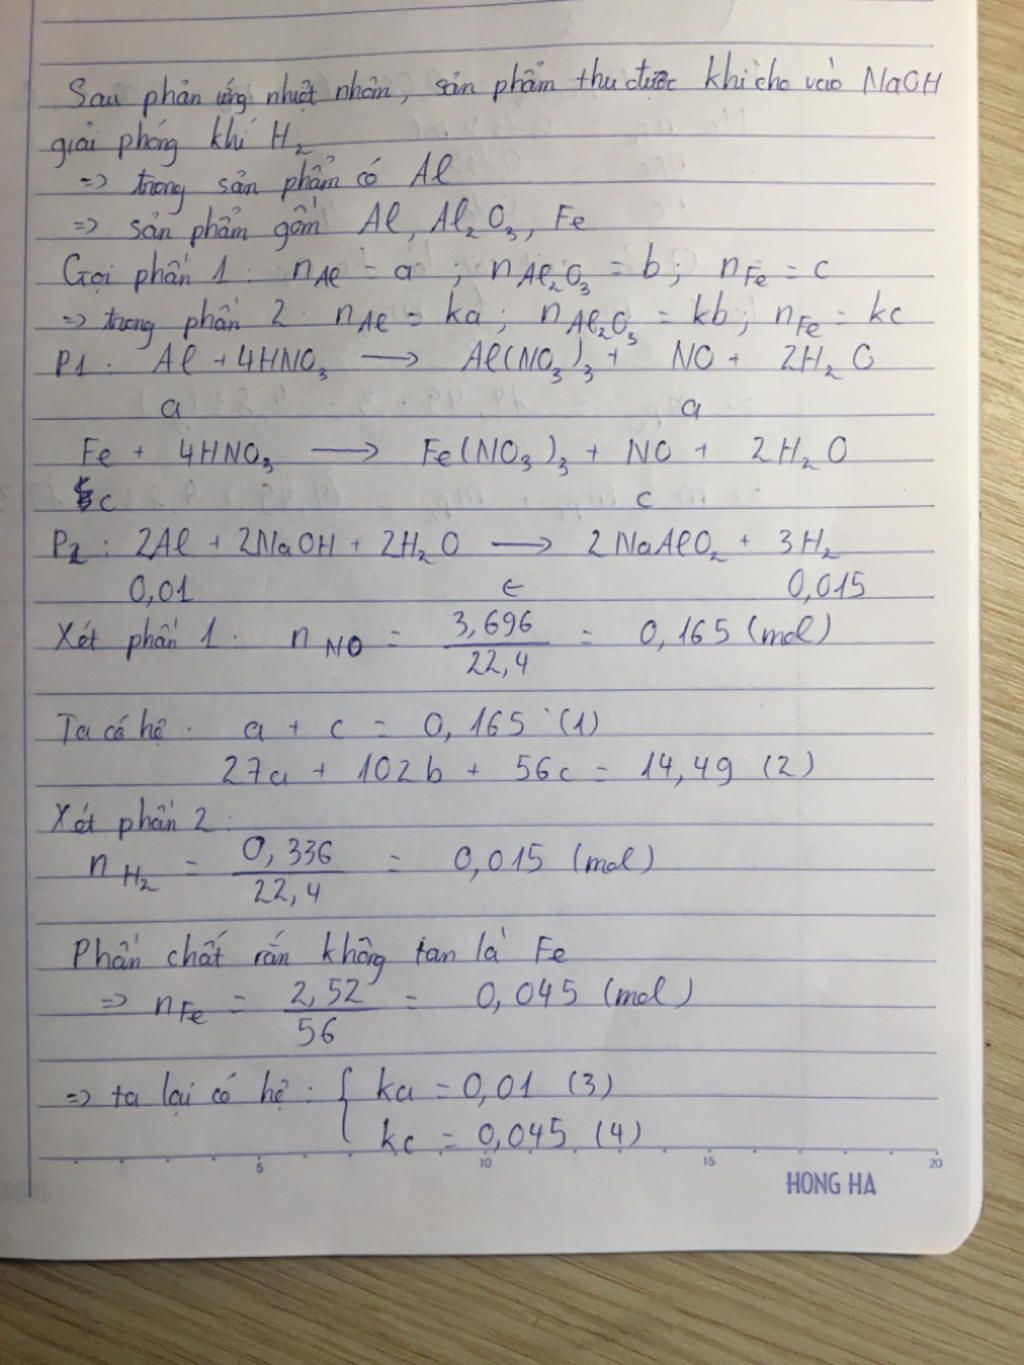 Sau phản ứng nhiệt nhôm, sản phẩm thu được khi cho vào NaOH
giải phóng khí H₂
=> trong sản phẩm có Al
=> sản phẩm gồm Al, Al₂O₃, Fe
Gọi phần 1: n Al = a ; n Al₂O₃ = b; n Fe = c
=> trong phần 2: n Al = ka; n Al₂O₃ = kb; n Fe = kc
P1: Al + 4HNO₃ → Al(NO₃)₃ + NO + 2H₂O
a a
Fe + 4HNO₃ → Fe(NO₃)₃ + NO + 2H₂O
c c
P2: 2Al + 2NaOH + 2H₂O → 2NaAlO₂ + 3H₂
0,01 ← 0,015
Xét phần 1: n NO = 3,696/22,4 = 0,165 (mol)
Ta có hệ: a + c = 0,165 (1)
27a + 102b + 56c = 14,49 (2)
Xét phần 2:
n H₂ = 0,336/22,4 = 0,015 (mol)
Phần chất rắn không tan là Fe
=> n Fe = 2,52/56 = 0,045 (mol)
=> ta lại có hệ: { ka = 0,01 (3)
kc = 0,045 (4)
5 10 15 20
HONG HA